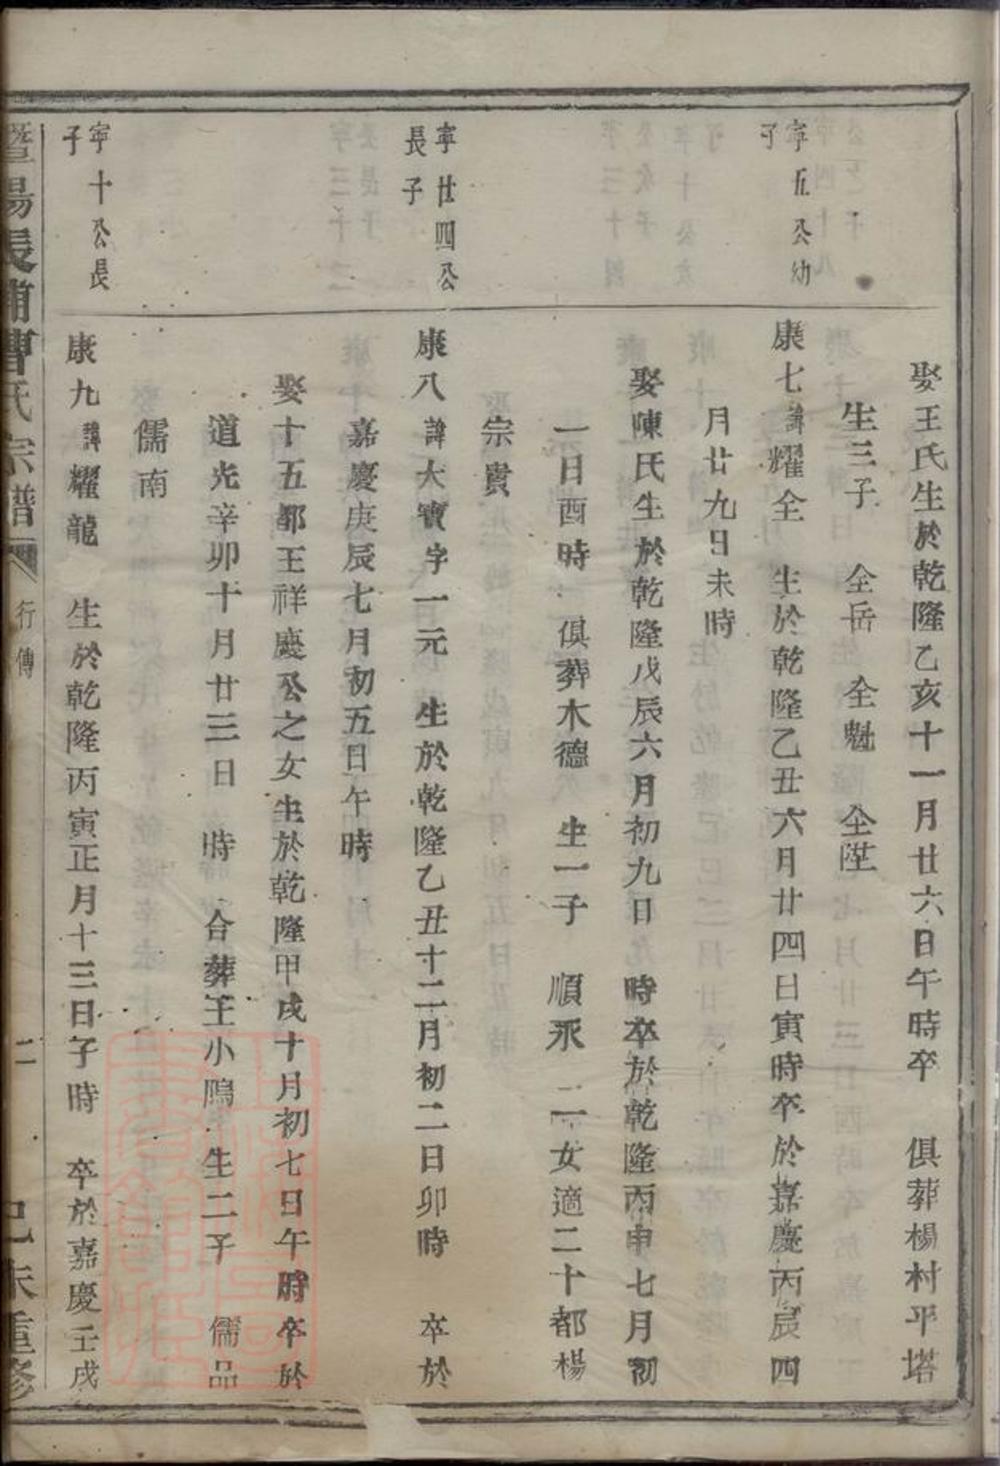 娶王氏生於乾隆乙亥十一月廿六日午時卒 俱葬楊村平塔
生三子 全岳 全魁 全陞
寧五公幼子
康七諱耀全 生於乾隆乙丑六月廿四日寅時卒於嘉慶丙辰四
月廿九日未時
娶陳氏生於乾隆戊辰六月初九日 時卒於乾隆丙申七月初
一日酉時 俱葬木德 生一子 順承 二女適二十都楊
宗貴
寧廿四公長子
康八諱大寶字一元 生於乾隆乙丑十二月初二日卯時 卒於
嘉慶庚辰七月初五日午時
娶十五都王祥慶公之女生於乾隆甲戌十月初七日午時卒於
道光辛卯十月廿三日 時 合葬王小塢 生二子 儒品
儒南
寧十公長子
康九諱耀龍 生於乾隆丙寅正月十三日子時 卒於嘉慶壬戌
暨陽長浦曹氏宗譜 行傳 二 己未重修